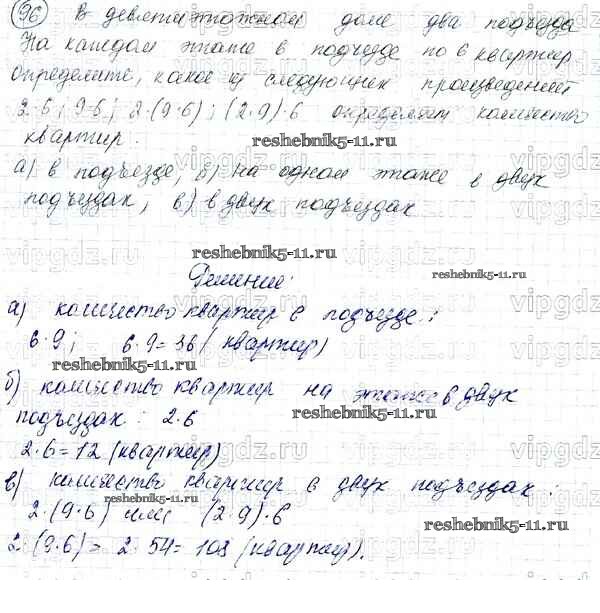 96 В девятиэтажном доме два подъезда
На каждом этаже в подъезде по 6 квартир
определите, какое из следующих произведений
2·6; 9·6; 2·(9·6); (2·9)·6 определяет количество
квартир.
reshebnik5-11.ru
а) в подъезде, б) на одном этаже в двух
подъездах, в) в двух подъездах
vipgdz.ru
reshebnik5-11.ru
reshebnik5-11.ru
Решение:
а) количество квартир в подъезде:
6·9; 6·9=36 (квартир)
reshebnik5-11.ru
б) количество квартир на этаже в двух
подъездах: 2·6
reshebnik5-11.ru
2·6=12 (квартир)
в) количество квартир в двух подъездах:
reshebnik5-11.ru
2·(9·6) или (2·9)·6
reshebnik5-11.ru
2·(9·6)= 2·54= 108 (квартир).